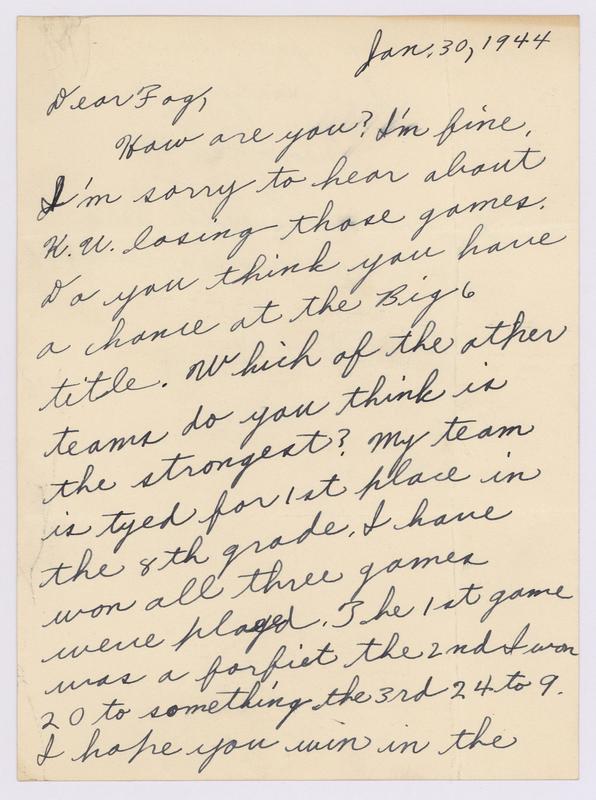 Jan. 30, 1944
Dear Fog,
How are you? I'm fine.
I'm sorry to hear about
K.U. losing those games.
Do you think you have
a chance at the Big 6
title. Which of the other
teams do you think is
the strongest? My team
is tyed for 1st place in
the 8th grade. I have
won all three games
weve played. The 1st game
was a forfiet the 2nd I won
20 to something the 3rd 24 to 9.
I hope you win in the